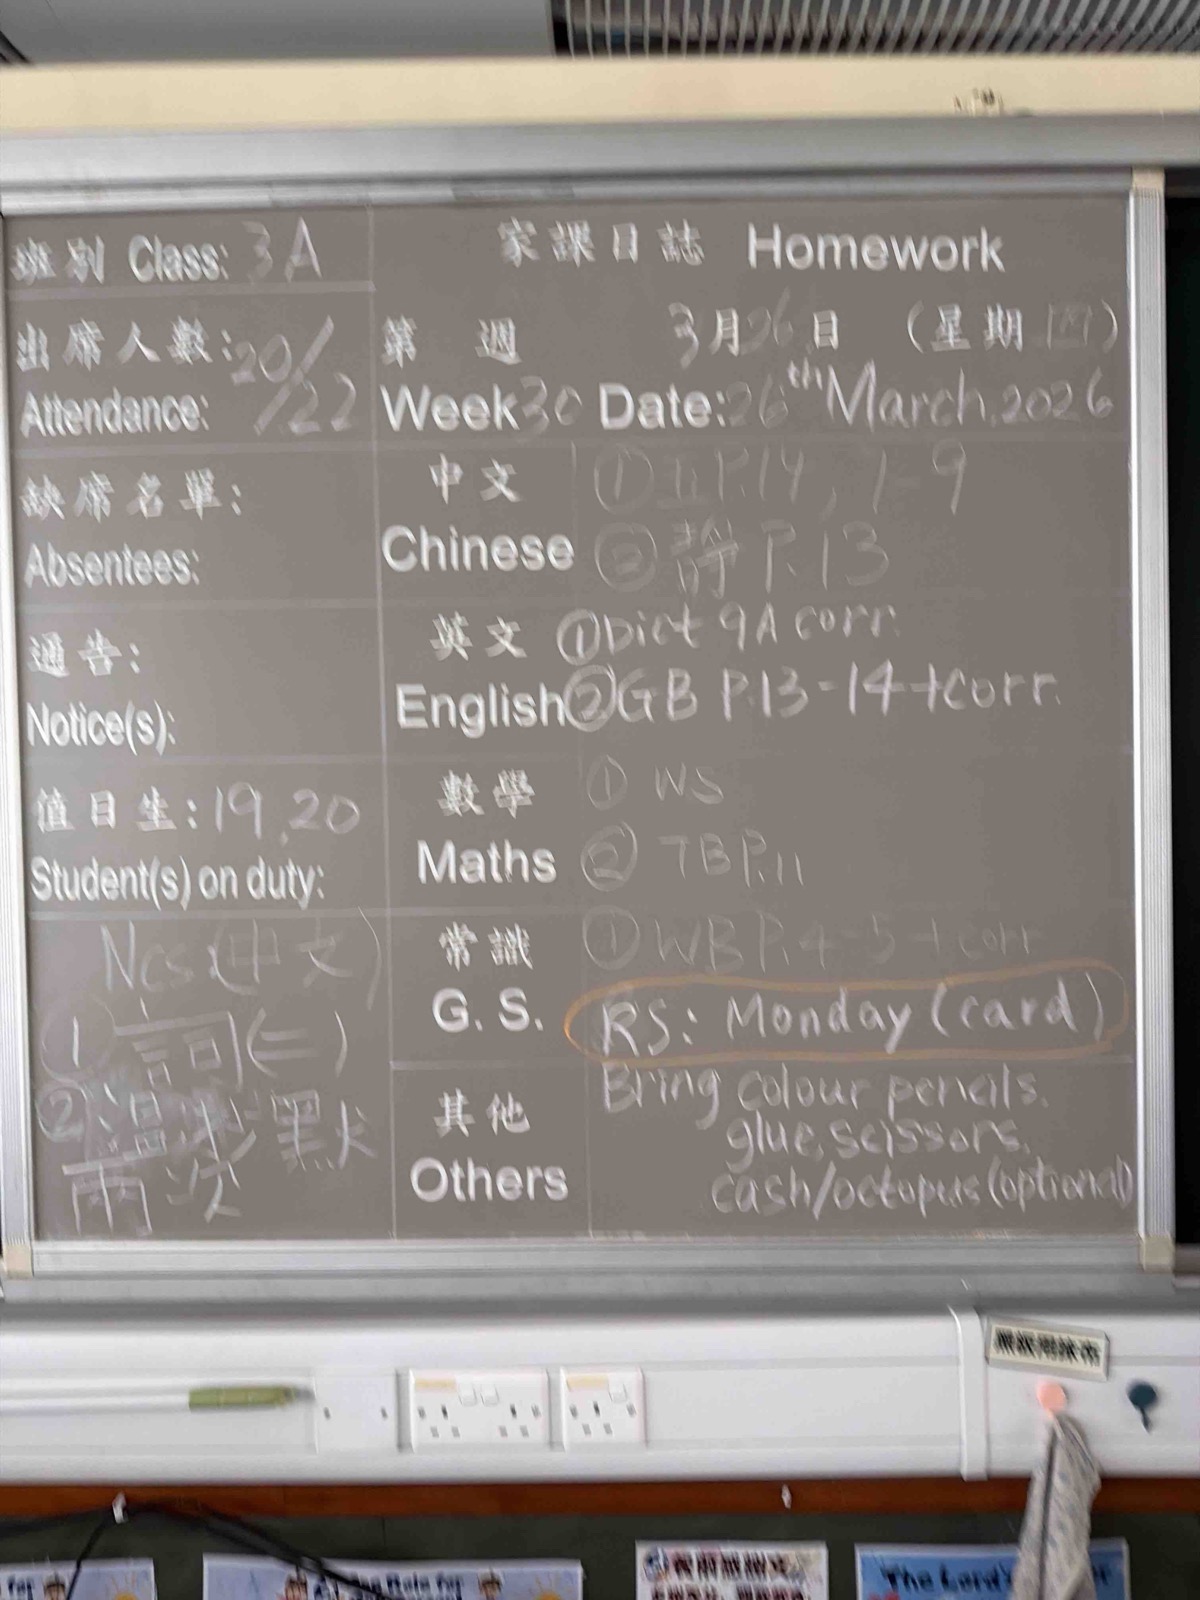 班別 Class: 3A
家課日誌 Homework
出席人數: 20/22
Attendance:
第 週 3月26日 (星期四)
Week 30 Date: 26th March, 2026
缺席名單:
Absentees:
中文 ① P.14, 1-9
Chinese ② P.13
通告:
Notice(s):
英文 ① Dict 9A corr.
English ② GB P.13-14+corr.
值日生: 19, 20
Student(s) on duty:
數學 ① WS
Maths ② TB P.11
Ncs (中文)
① 詞(二)
② 溫 默
兩次
常識 ① WB P.4-5+corr
G. S. RS: Monday (card)
其他 Bring colour pencils,
glue, scissors,
Others cash/octopus (optional)
The Lord's